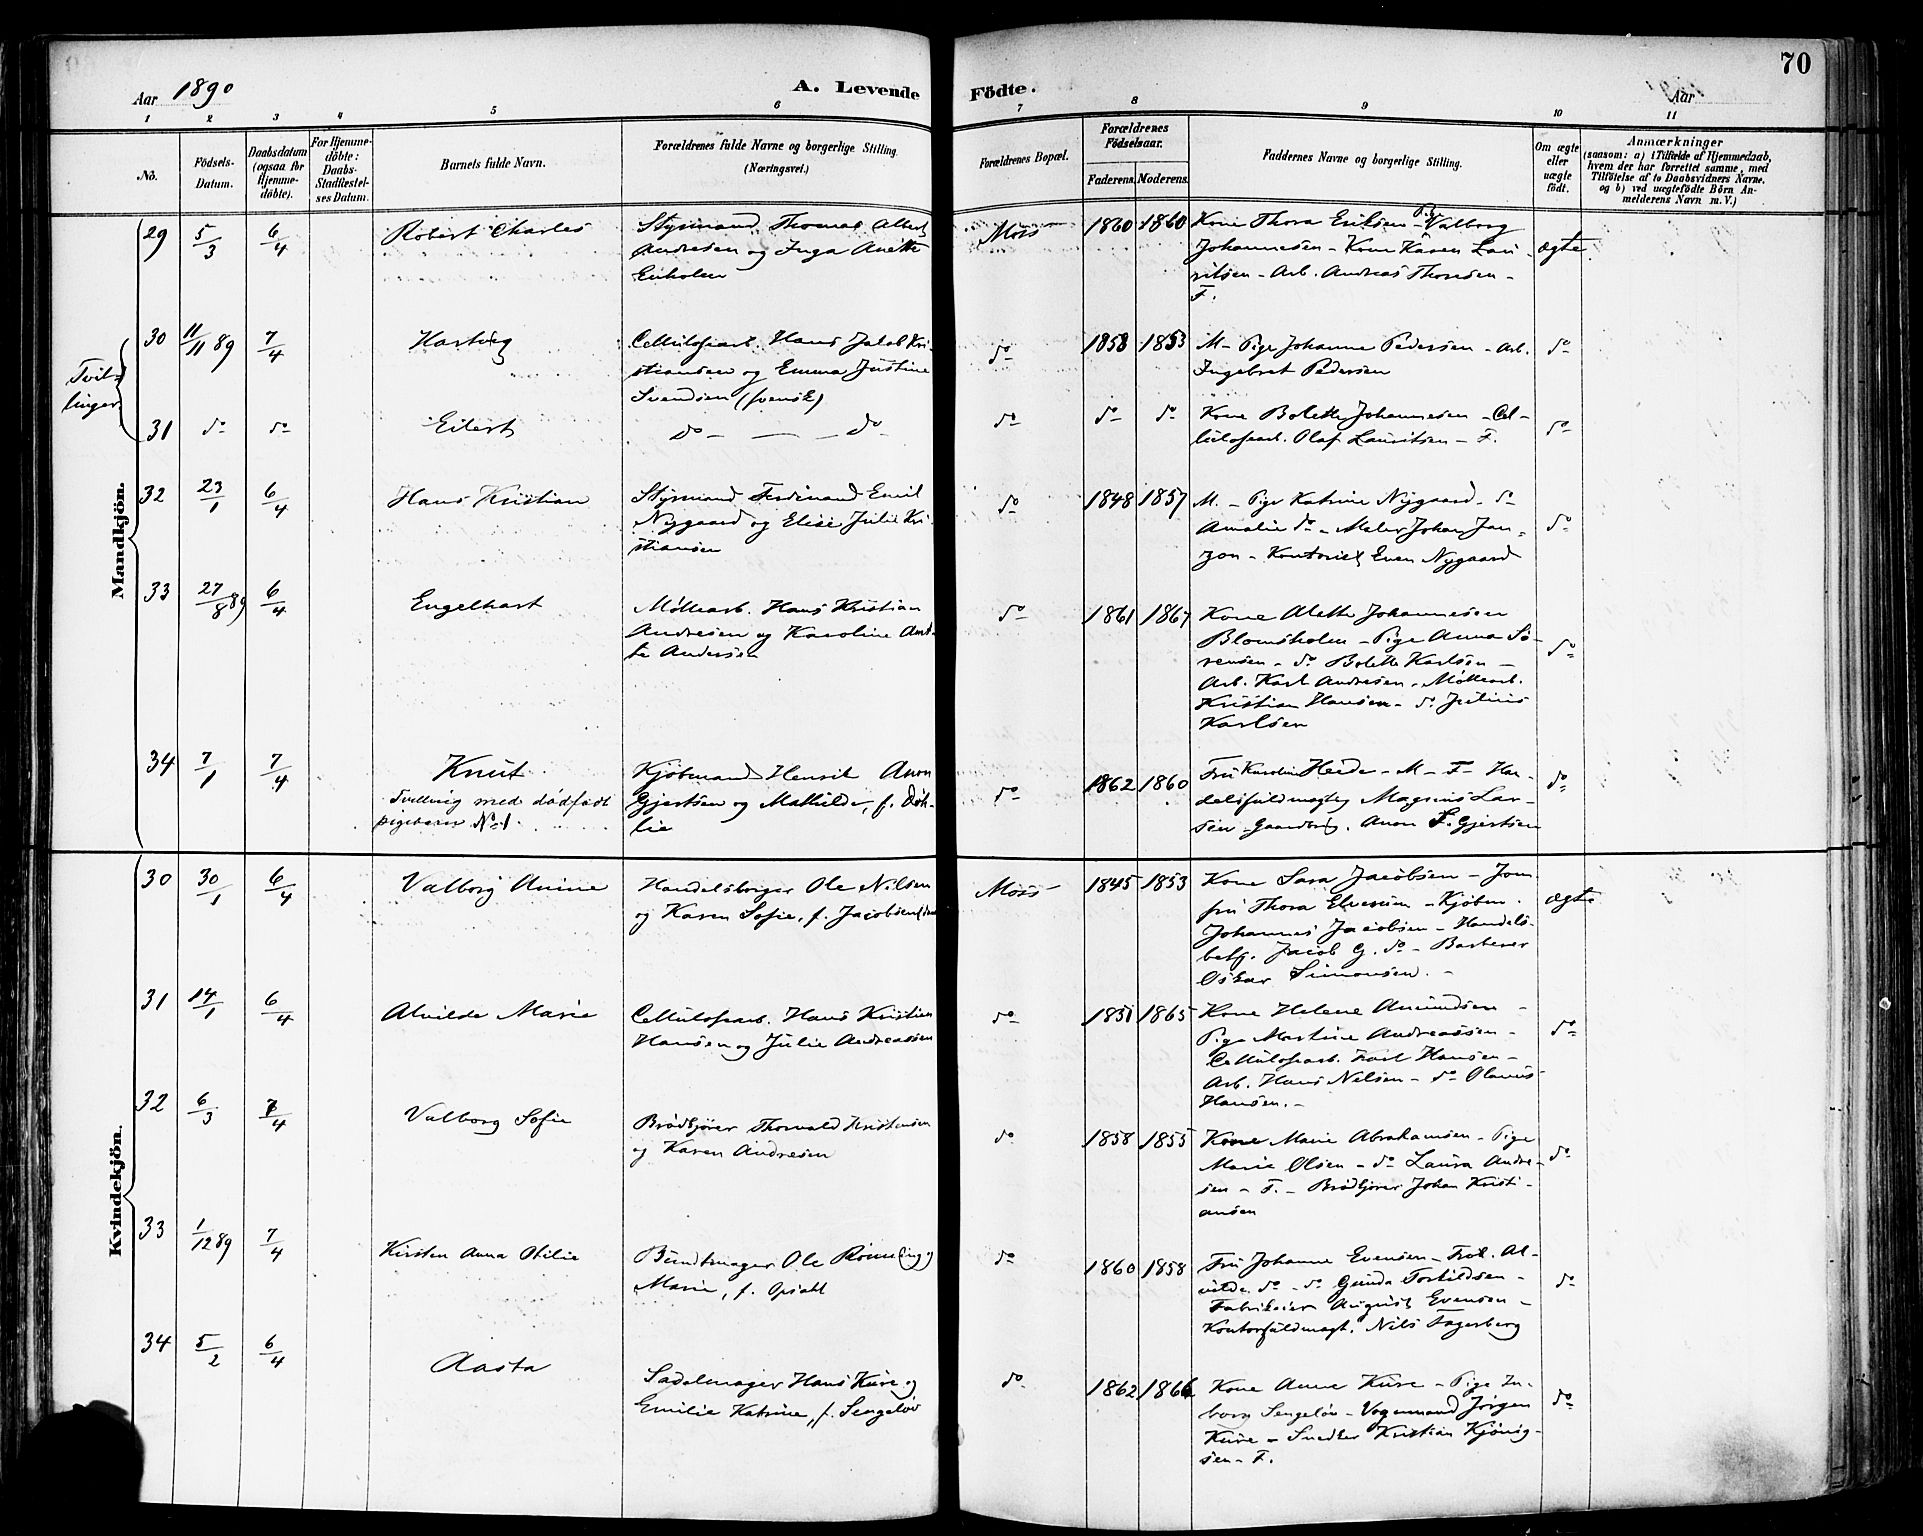 70
Aar 1890
A. Levende Födte.
Aar
1 2 3 4 5 6 7 8 9 10 11
No.
Födsels-Datum.
Daabsdatum (ogsaa for Hjemme-döbte).
For Hjemme-döbte: Daabs-Stadfæstel-ses Datum.
Barnets fulde Navn.
Forældrenes fulde Navne og borgerlige Stilling. (Næringsvei.)
Forældrenes Bopæl.
Forældrenes Födselsaar.
Faderens. Moderens.
Faddernes Navne og borgerlige Stilling.
Om ægte eller uægte födt.
Anmærkninger
(saasom: a) i Tilfælde af Hjemmedaab,
hvem der har forrettet samme, med
Tilföielse af to Daabsvidners Navne,
og b) ved uægtefödte Börn An-
melderens Navn m. V.)
Mandkjön.
29 5/3 6/4 Robert Charles
Styrmand Thomas Albert
Andresen og Inga Anette
Enholm
Moss 1860 1860
Kone Thora Eriksen - Pige Valborg
Johannesen - Kone Karen Lau-
ritsen - Arb. Andreas Thoresen -
F.
ægte
Tvil-
linger
30 11/11 89 7/4 Hartvig
Cellulosearb. Hans Jakob Kri-
stiansen og Emma Justine
Svendsen (svensk)
do 1858 1853
M - Pige Johanne Pedersen - Arb.
Ingebret Pedersen
do
31 do do Eilert
do - — - do
do do do
Kone Bolette Johannesen - Cel-
lulosearb. Olaf Lauritsen - F.
do
32 23/1 6/4 Hans Kristian
Styrmand Ferdinand Emil
Nygaard og Elise Julie Kri-
stiansen
do 1848 1857
M. - Pige Katrine Nygaard - do
Amalie do - Maler Johan Jan-
zon - Kontorist Even Nygaard
do
33 27/8 89 6/4 Engelhart
Møllearb. Hans Kristian
Andresen og Karoline Anet-
te Andersen
do 1861 1867
Kone Alette Johannesen
Blomsholm - Pige Anna Sö-
rensen - do Bolette Karlsen -
Arb. Karl Andresen - Møllearb.
Kristian Hansen - do Julius
Karlsen
do
34 7/1 7/4 Knut
Tvilling med dödfödt
pigebarn No 1.
Kjöbmand Henrik Anon
Gjertsen og Mathilde, f. Döh-
lie
do 1862 1860
Fru Karoline Heide - M - F - Han-
delsfuldmægtig Magnus Lar-
sen - Gaardbrg. Anon F. Gjertsen
do
Kvindekjön.
30 30/1 6/4 Valborg Anine
Handelsborger Ole Nilsen
og Karen Sofie, f. Jacobsen
Moss 1845 1853
Kone Sara Jacobsen - Jom-
fru Thora Elvesen - Kjöbm.
Johannes Jacobsen - Handels-
betj. Jacob G. do - Barberer
Oskar Simonsen. -
ægte
31 14/1 6/4 Alvilde Marie
Cellulosearb. Hans Kristian
Hansen og Julie Andreassen
do 1851 1865
Kone Helene Amundsen -
Pige Martine Andreassen -
Cellulosearb. Karl Hansen -
Arb. Hans Nilsen - do Olanus
Hansen. -
do
32 6/3 7/4 Valborg Sofie
Brödkjörer Thorvald Kristensen
og Karen Andresen
do 1858 1855
Kone Marie Abrahamsen - Pige
Marie Olsen - do Laura Andre-
sen - F. - Brödkjörer Johan Kristi-
ansen
do
33 1/12 89 7/4 Kirsten Anna Otilie
Buntmager Ole Rönne(ing) og
Marie, f. Opsahl
do 1860 1858
Fru Johanne Evensen - Frök. Al-
vilde do - do Gunda Torkildsen -
Fabrikeier August Evensen -
Kontorfuldmægt. Nils Fagerberg
do
34 5/2 6/4 Aasta
Sadelmager Hans Kure og
Emilie Katrine, f. Sengelöv
do 1862 1866
Kone Anne Kure - Pige In-
borg Sengelöv - Vognmand Jörgen
Kure - Snedker Kristian Kjönig-
sen - F.
do